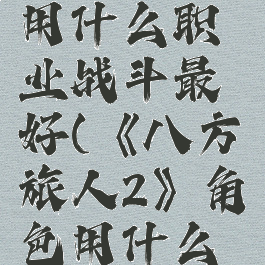 用什么职
业战斗最
好(《八方
旅人2》角
色用什么